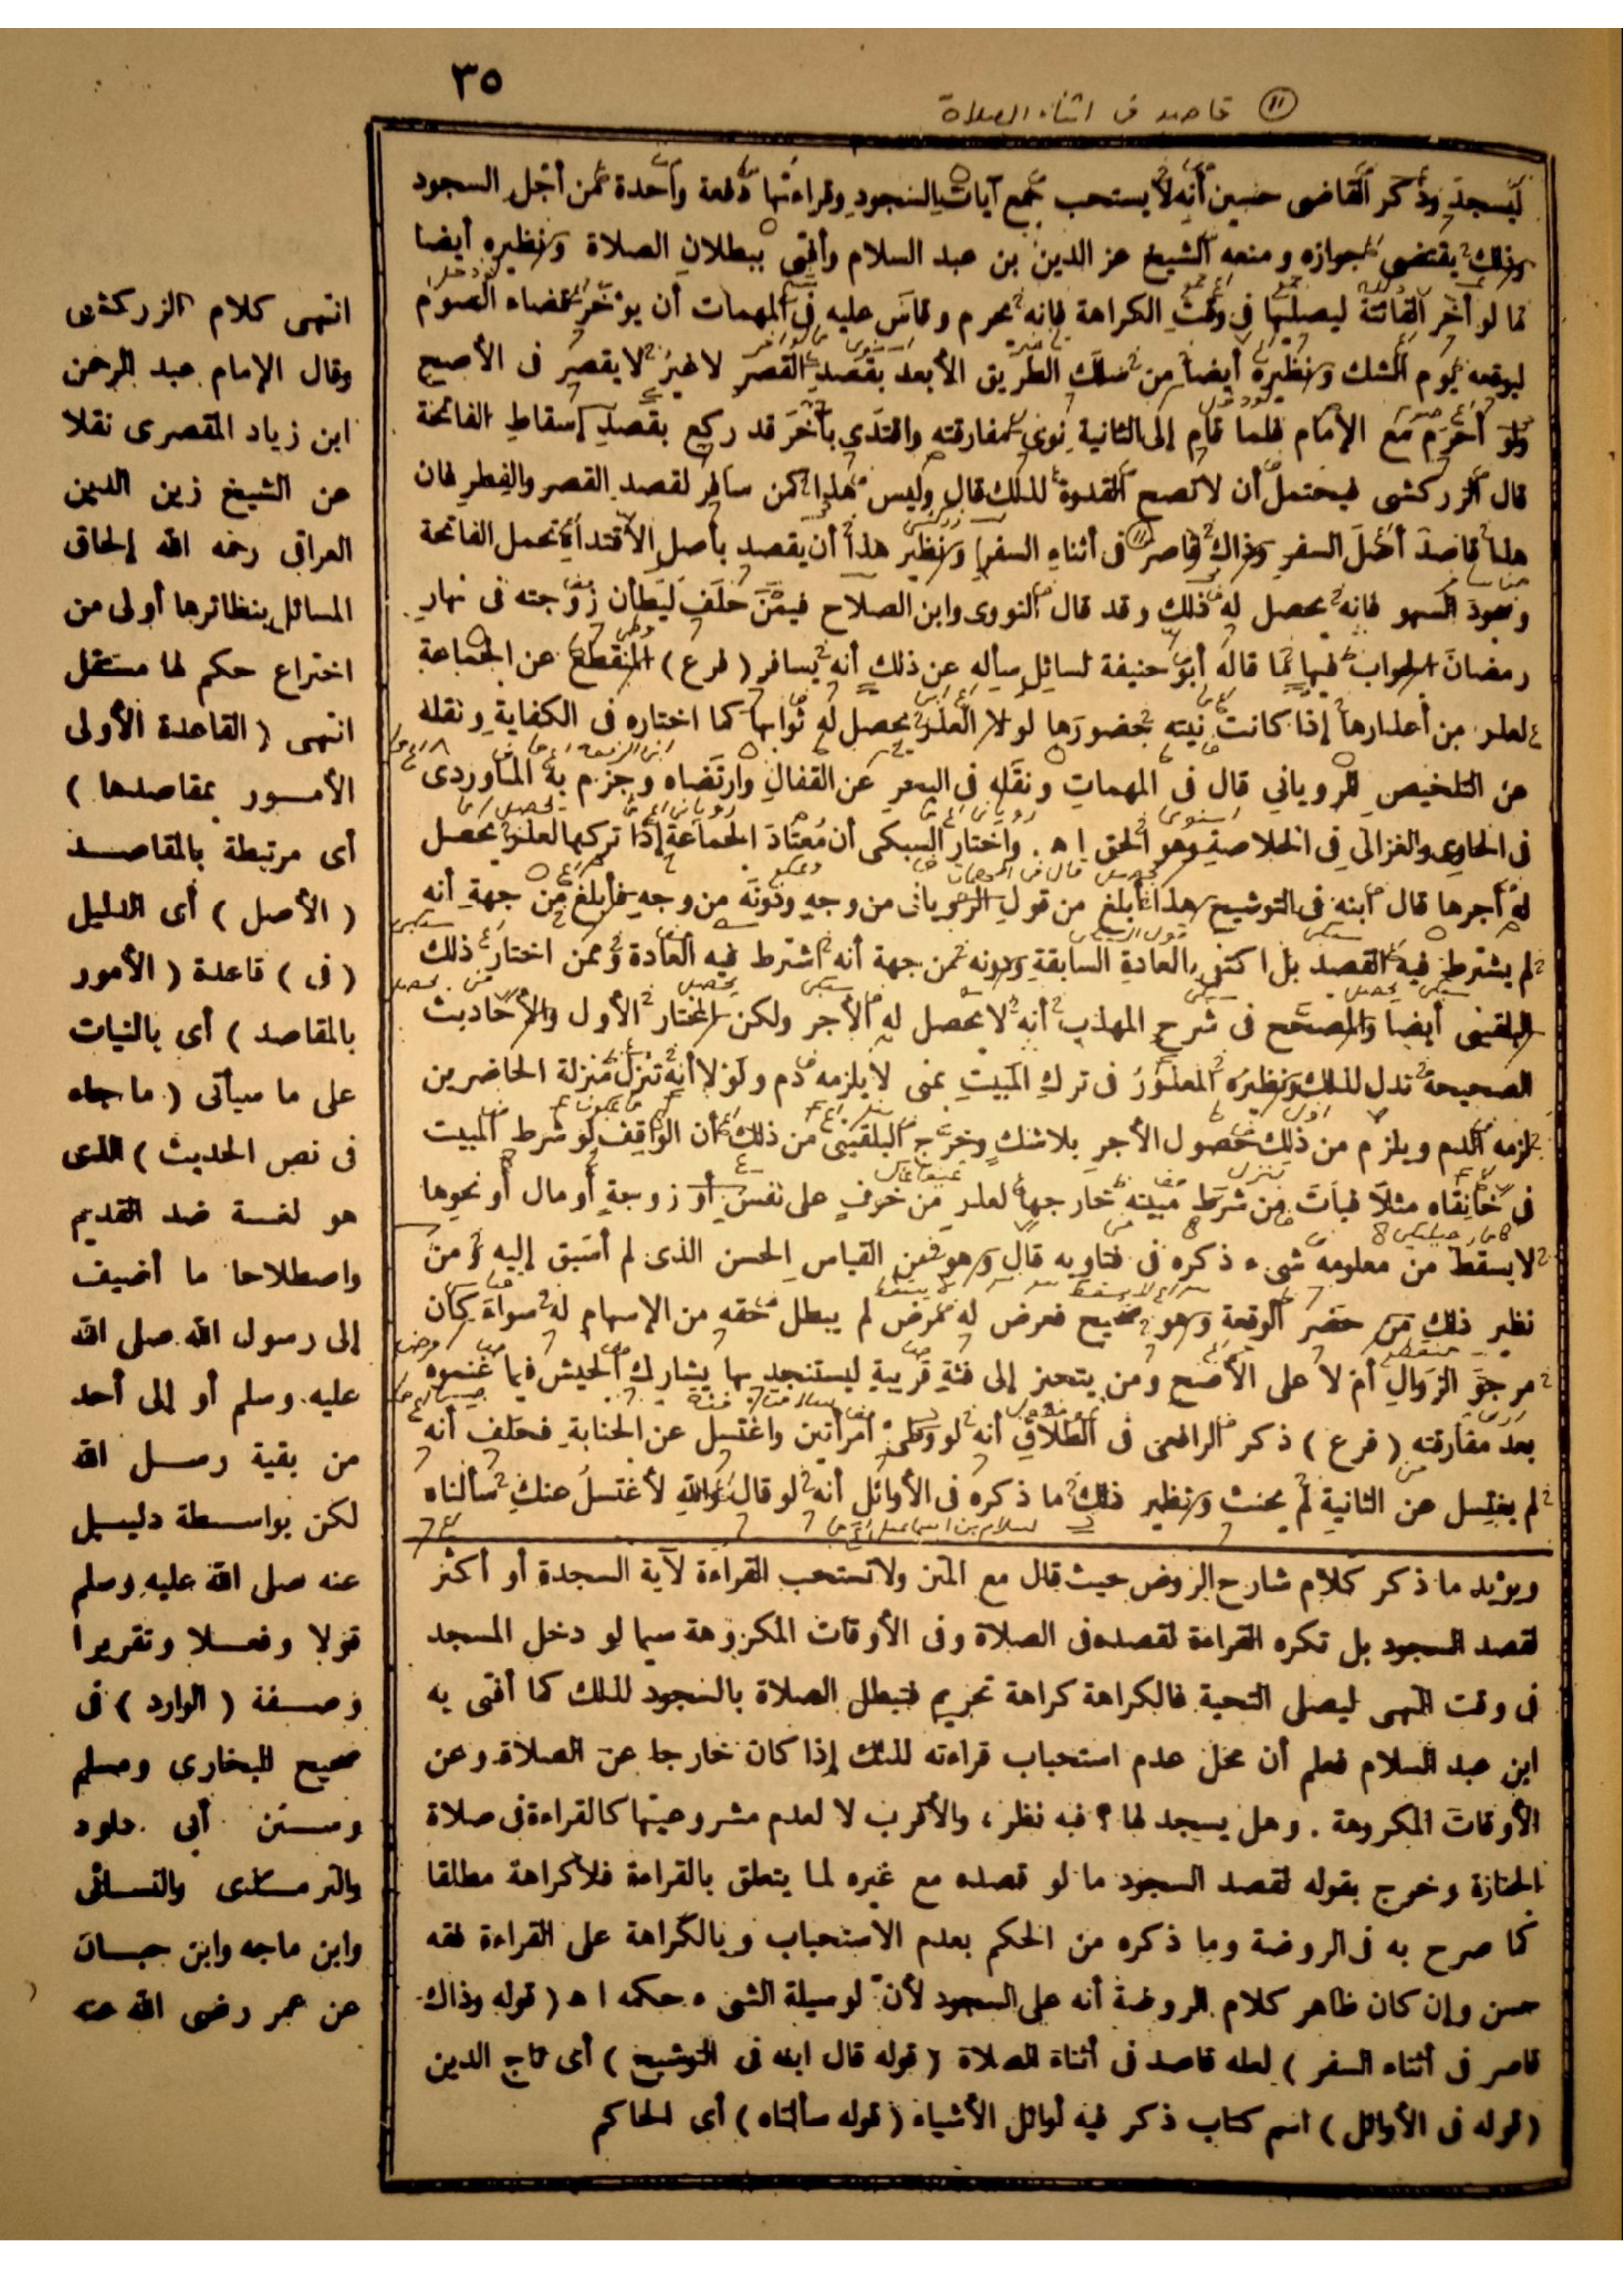 ٣٥
(١١) قاصد فى اثناء الصلاة
ليسجد وذكر القاضى حسين أنه لا يستحب جمع آيات السجود وقراءتها دفعة واحدة من أجل السجود
وذلك يقتضى جوازه ومنعه الشيخ عز الدين بن عبد السلام وأفتى ببطلان الصلاة ونظيره أيضا
ما لو أخر الفائتة ليصليها فى وقت الكراهة فإنه يحرم وقاس عليه فى المهمات أن يؤخر قضاء الصوم
ليوقعه يوم الشك ونظيره أيضا من سلك الطريق الأبعد بقصد القصر لا غير لا يقصر فى الأصح
ولو أحرم مع الإمام فلما قام إلى الثانية نوى مفارقته واقتدى بآخر قد ركع بقصد إسقاط الفاتحة
قال الزركشى فيحتمل أن لا تصح القدوة لذلك قال وليس هذا كمن سافر لقصد القصر والفطر فان
هذا قاصد أصل السفر وذاك قاصر فى أثناء السفر ونظير هذا أن يقصد بأصل الاقتداء تحمل الفاتحة
وسجود السهو فانه يحصل له ذلك وقد قال النووى وابن الصلاح فيمن حلف ليطأن زوجته فى نهار
رمضان الجواب فيها ما قاله أبو حنيفة لسائل سأله عن ذلك أنه يسافر ( فرع ) المنقطع عن الجماعة
لعذر من أعذارها إذا كانت نيته حضورها لولا العذر يحصل له ثوابها كما اختاره فى الكفاية ونقله
عن التلخيص للرويانى قال فى المهمات ونقله فى البحر عن القفال وارتضاه وجزم به الماوردى
فى الحاوى والغزالى فى الخلاصة وهو الحق ا ه . واختار السبكى أن معتاد الجماعة إذا تركها لعذر يحصل
له أجرها قال ابنه فى التوشيح هذا أبلغ من قول الرويانى من وجه ودونه من وجه فأبلغ من جهة أنه
لم يشترط فيه القصد بل اكتفى بالعادة السابقة ودونه من جهة أنه اشترط فيه العادة وممن اختار ذلك
البلقينى أيضا والمصحح فى شرح المهذب أنه لا يحصل له الأجر ولكن المختار الأول والأحاديث
الصحيحة تدل لذلك ونظيره المعذور فى ترك المبيت بمنى لا يلزمه دم ولولا أنه تنزل منزلة الحاضرين
لزمه الدم ويلزم من ذلك حصول الأجر بلا شك وخرج البلقينى من ذلك أن الواقف لو شرط المبيت
فى خانقاه مثلا فبات من شرط مبيته خارجها لعذر من خوف على نفس أو زوجة أو مال أو نحوها
لا يسقط من معلومه شىء ذكره فى فتاويه قال وهو من القياس الحسن الذى لم أسبق إليه ومن
نظير ذلك من حضر الوقعة وهو صحيح فعرض له مرض لم يبطل حقه من الإسهام له سواء كان
مرجو الزوال أم لا على الأصح ومن يتحيز إلى فئة قريبة ليستنجد بها يشارك الجيش فيما غنموه
بعد مفارقته ( فرع ) ذكر الرافعى فى الطلاق أنه لو وطىء امرأتين واغتسل عن الجنابة فحلف أنه
لم يغتسل عن الثانية لم يحنث ونظير ذلك ما ذكره فى الأوائل أنه لو قال والله لأغتسل عنك سألناه
ويؤيد ما ذكر كلام شارح الروض حيث قال مع المتن ولا تستحب القراءة لآية السجدة أو أكثر
لقصد السجود بل تكره القراءة لقصده فى الصلاة وفى الأوقات المكروهة سيما لو دخل المسجد
فى وقت النهى ليصلى التحية فالكراهة كراهة تحريم فتبطل الصلاة بالسجود لذلك كما أفتى به
ابن عبد السلام فعلم أن محل عدم استحباب قراءته لذلك إذا كان خارجا عن الصلاة وعن
الأوقات المكروهة . وهل يسجد لها ؟ فيه نظر ، والأقرب لا لعدم مشروعيتها كالقراءة فى صلاة
الجنازة وخرج بقوله لقصد السجود ما لو قصده مع غيره لما يتعلق بالقراءة فلا كراهة مطلقا
كما صرح به فى الروضة وما ذكره من الحكم بعدم الاستحباب وبالكراهة على القراءة فقه
حسن وإن كان ظاهر كلام الروضة أنه على السجود لأن لوسيلة الشىء حكمه ا ه ( قوله وذاك
قاصر فى أثناء السفر ) لعله قاصد فى أثناء الصلاة ( قوله قال ابنه فى التوشيح ) أى تاج الدين
( قوله فى الأوائل ) اسم كتاب ذكر فيه أوائل الأشياء ( قوله سألناه ) أى الحاكم
انتهى كلام الزركشى
وقال الإمام عبد الرحمن
ابن زياد المقصرى نقلا
عن الشيخ زين الدين
العراقى رحمه الله إلحاق
المسائل بنظائرها أولى من
اختراع حكم لها مستقل
انتهى ( القاعدة الأولى
الأمور بمقاصدها )
أى مرتبطة بالمقاصد
( الأصل ) أى الدليل
( فى ) قاعدة ( الأمور
بالمقاصد ) أى بالنيات
على ما سيأتى ( ما جاء
فى نص الحديث ) الذى
هو لغة ضد القديم
واصطلاحا ما أضيف
إلى رسول الله صلى الله
عليه وسلم أو إلى أحد
من بقية رسل الله
لكن بواسطة دليل
عنه صلى الله عليه وسلم
قولا وفعلا وتقريرا
وصفة ( الوارد ) فى
صحيح البخارى ومسلم
وسنن أبى داود
والترمذى والنسائى
وابن ماجه وابن حبان
عن عمر رضى الله عنه